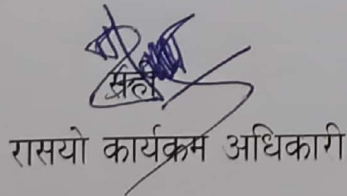 सही
रासयो कार्यक्रम अधिकारी